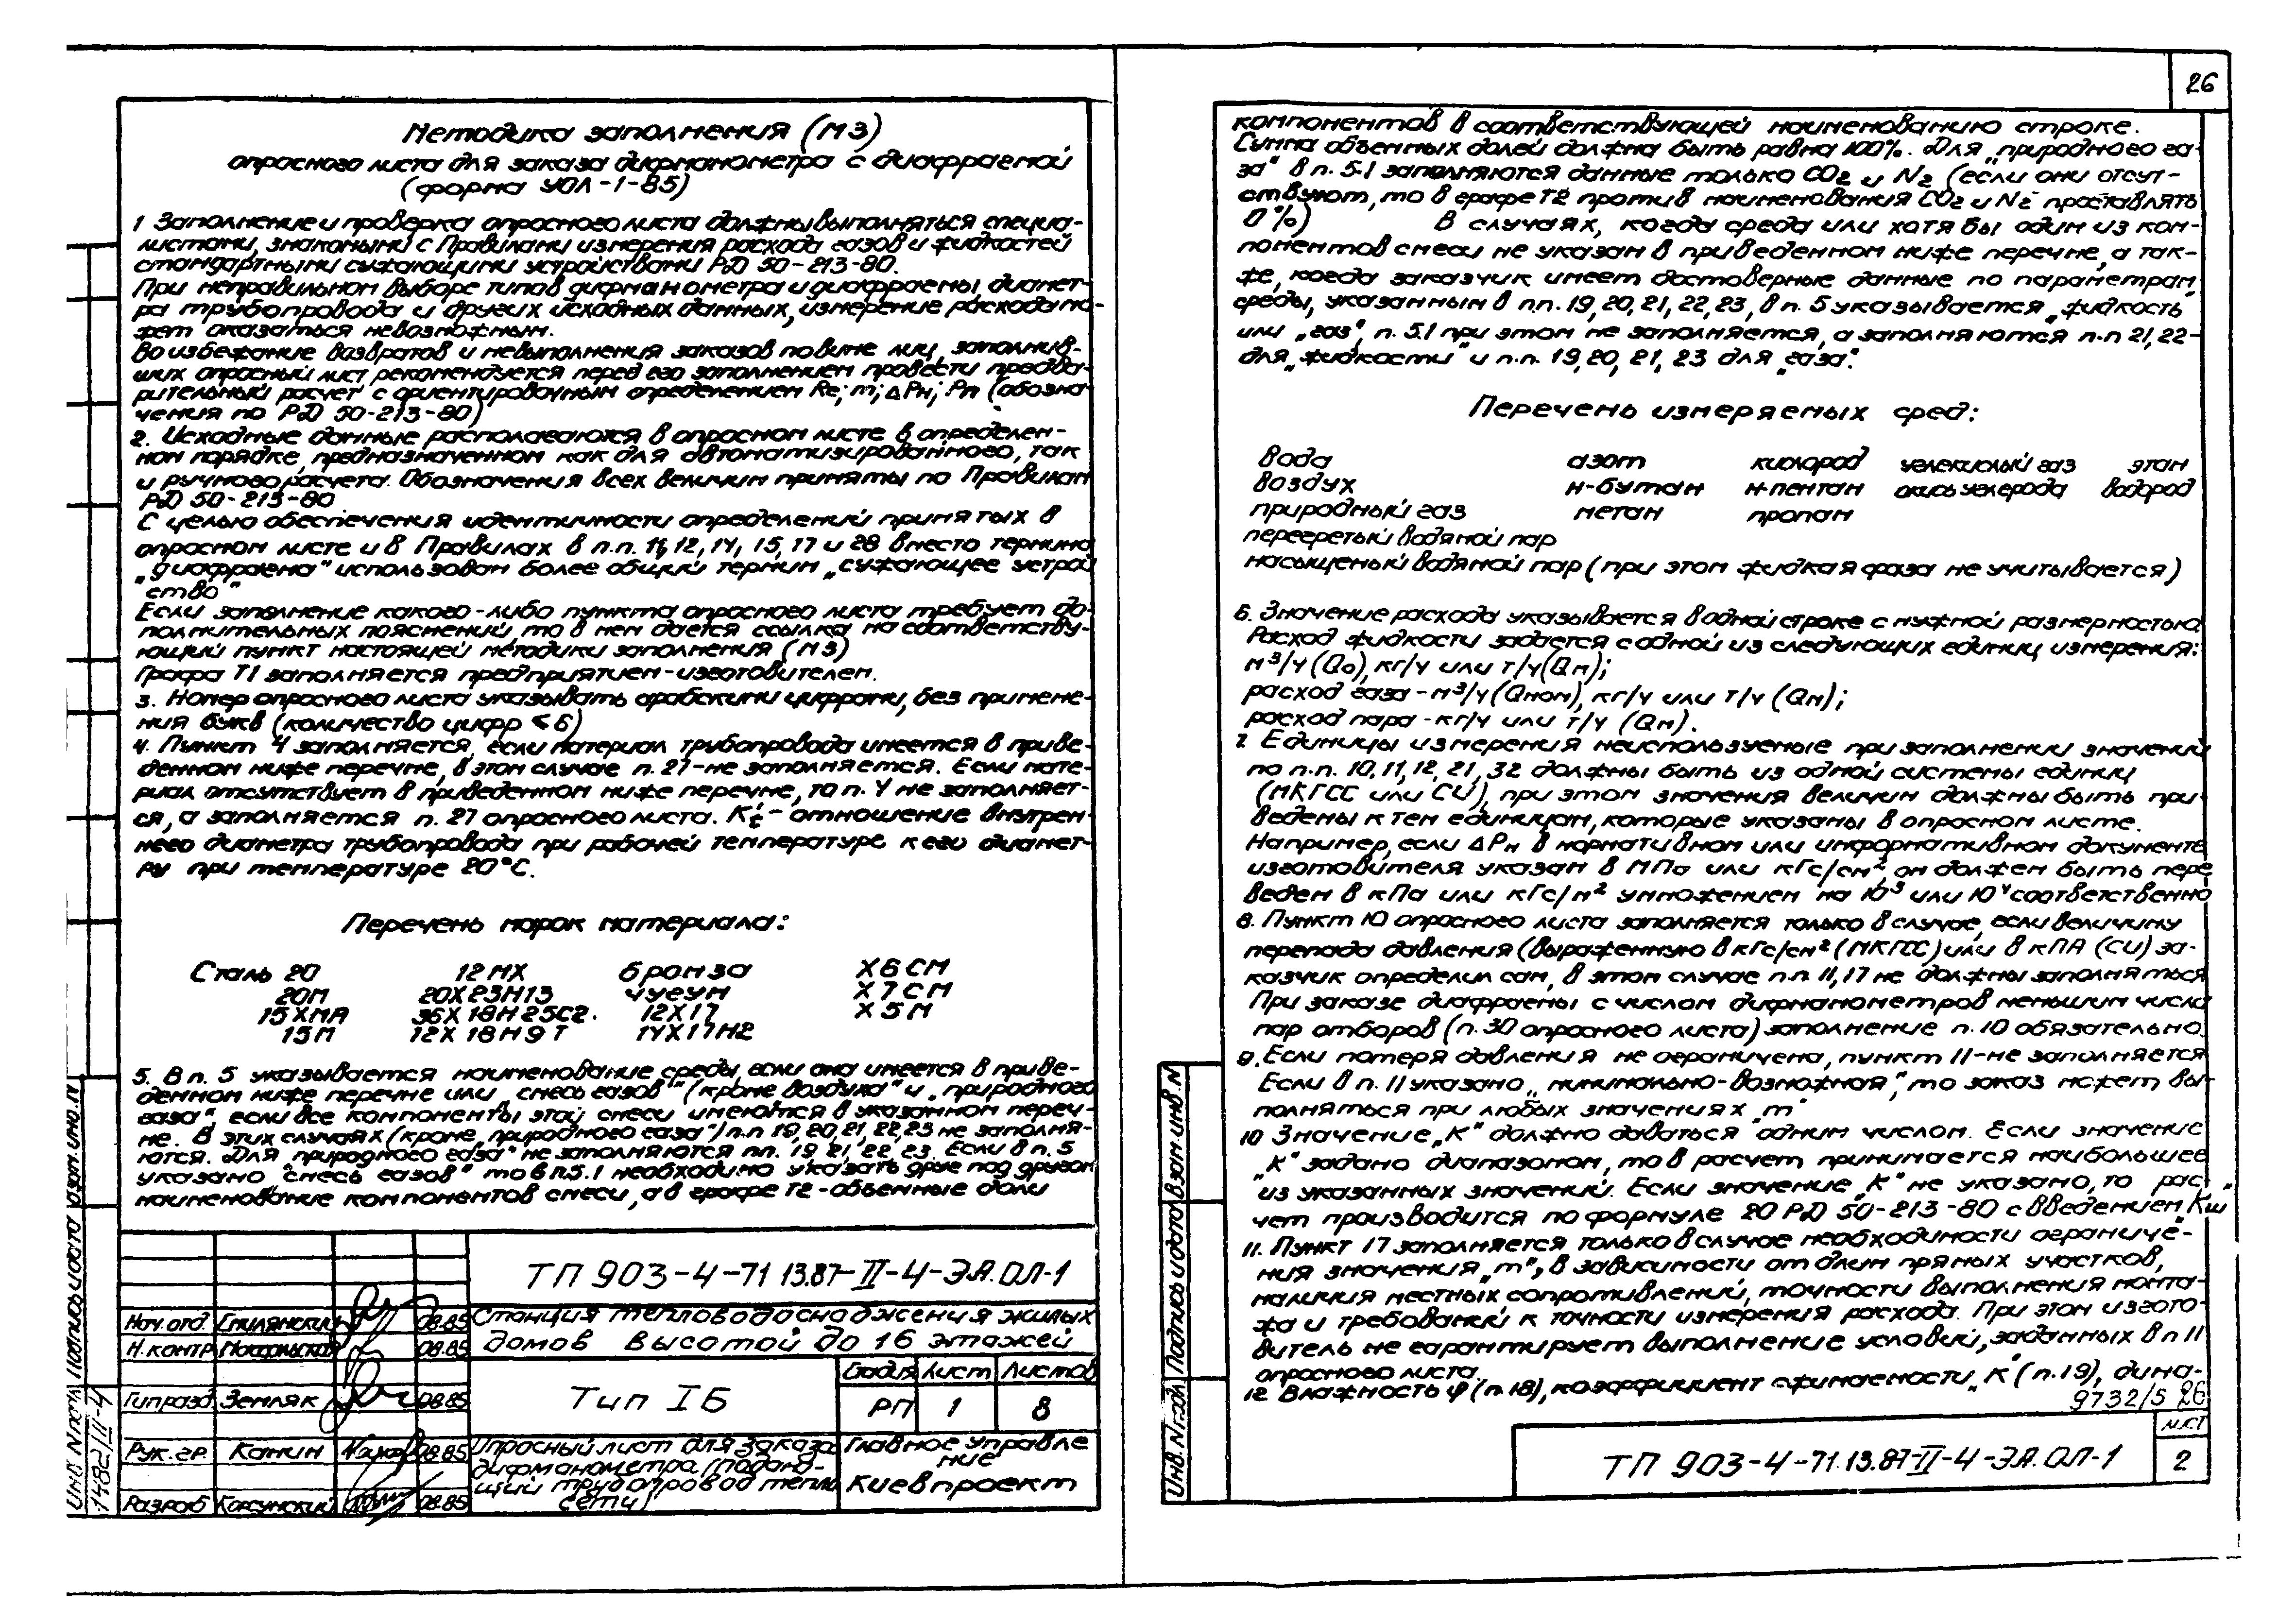 26
Методика заполнения (М3)
опросного листа для заказа дифманометра с диафрагмой
(форма УОЛ-1-85)
1 Заполнение и проверка опросного листа должны выполняться специа-
листами, знакомыми с Правилами измерения расхода газов и жидкостей
стандартными сужающими устройствами РД 50-213-80.
При неправильном выборе типов дифманометра и диафрагмы, диамет-
ра трубопровода и других исходных данных, измерение расхода мо-
жет оказаться невозможным.
Во избежание возвратов и невыполнения заказов по вине лиц, заполнив-
ших опросный лист рекомендуется перед его заполнением провести предва-
рительный расчет с ориентировочным определением Re; m; ΔPн; Pп (обозна-
чения по РД 50-213-80)
2. Исходные данные располагаются в опросном листе в определен-
ном порядке, предназначенном как для автоматизированного, так
и ручного расчета. Обозначения всех величин приняты по Правилам
РД 50-213-80
С целью обеспечения идентичности определений принятых в
опросном листе и в Правилах в п.п. 11, 12, 14, 15, 17 и 28 вместо термина
„диафрагма" использован более общий термин „сужающее устрой
ство"
Если заполнение какого-либо пункта опросного листа требует до-
полнительных пояснений, то в нем дается ссылка на соответству-
ющий пункт настоящей методики заполнения (М3)
Графа Т1 заполняется предприятием-изготовителем.
3. Номер опросного листа указывать арабскими цифрами, без примене-
ния букв (количество цифр ≤ 6)
4. Пункт 4 заполняется, если материал трубопровода имеется в приве-
денном ниже перечне, в этом случае п. 27-не заполняется. Если мате-
риал отсутствует в приведенном ниже перечне, то п. 4 не заполняет-
ся, а заполняется п. 27 опросного листа. K't - отношение внутрен-
него диаметра трубопровода при рабочей температуре к его диамет-
ру при температуре 20°С.
Перечень марок материала:
Сталь 20 12МХ бронза Х6СМ
20М 20Х23Н13 чугун Х7СМ
15ХМА 36Х18Н25С2. 12Х17 Х5М
15М 12Х18Н9Т 14Х17Н2
5. В п. 5 указывается наименование среды, если она имеется в приве-
денном ниже перечне или „смесь газов" (кроме воздуха" и „природного
газа", если все компоненты этой смеси имеются в указанном переч-
не. В этих случаях (кроме „природного газа") п.п 19, 20, 21, 22, 23 не заполня-
ются. Для „природного газа" не заполняются пп. 19, 21, 22, 23. Если в п. 5
указано "смесь газов" то в п.5.1 необходимо указать друг под другом
наименование компонентов смеси, а в графе Т2-объемные доли
компонентов в соответствующей наименованию строке.
Сумма объемных долей должна быть равна 100%. Для „природного га-
за" в п. 5.1 заполняются данные только СО2 и N2 (если они отсут-
ствуют, то в графе Т2 против наименования СО2 и N2 проставлять
0%) В случаях, когда среда или хотя бы один из ком-
понентов смеси не указан в приведенном ниже перечне, а так-
же, когда заказчик имеет достоверные данные по параметрам
среды, указанным в п.п. 19, 20, 21, 22, 23, в п. 5 указывается „жидкость"
или „газ", п. 5.1 при этом не заполняется, а заполняются п.п 21, 22-
для „жидкости" и п.п. 19, 20, 21, 23 для „газа".
Перечень измеряемых сред:
вода азот кислород углекислый газ этан
воздух н-бутан н-пентан окись углерода водород
природный газ метан пропан
перегретый водяной пар
насыщеный водяной пар (при этом жидкая фаза не учитывается)
6. Значение расхода указывается в одной строке с нужной размерностью.
Расход жидкости задается с одной из следующих единиц измерения:
м³/ч (Qo), кг/ч или т/ч (Qм);
расход газа - м³/ч (Qном), кг/ч или т/ч (Qм);
расход пара - кг/ч или т/ч (Qм).
7 Единицы измерения неиспользуемые при заполнении значений
по п.п. 10, 11, 12, 21, 32 должны быть из одной системы единиц
(МКГСС или СИ), при этом значения величин должны быть при-
ведены к тем единицам, которые указаны в опросном листе.
Например, если ΔPн в нормативном или информативном документе
изготовителя указан в МПа или кГс/см², он должен быть пере
веден в кПа или кГс/м² умножением на 10³ или 10⁴ соответственно
8. Пункт 10 опросного листа заполняется только в случае, если величину
перепада давления (выраженную в кГс/см² (МКГСС) или в кПА (СИ) за-
казчик определил сам, в этом случае п.п. 11, 17 не должны заполняться
При заказе диафрагмы с числом дифманометров меньшим числа
пар отборов (п. 30 опросного листа) заполнение п. 10 обязательно.
9. Если потеря давления не ограничена, пункт 11-не заполняется
Если в п. 11 указано „минимально-возможная", то заказ может вы-
полняться при любых значениях „m"
10 Значение „К" должно даваться одним числом. Если значение
„К" задано диапазоном, то в расчет принимается наибольшее
из указанных значений. Если значение „К" не указано, то рас-
чет производится по формуле 20 РД 50-213-80 с введением „Кш"
11. Пункт 17 заполняется только в случае необходимости ограниче-
ния значения „m", в зависимости от длин прямых участков,
наличия местных сопротивлений, точности выполнения монта-
жа и требований к точности измерения расхода. При этом изгото-
витель не гарантирует выполнение условий, заданных в п 11
опросного листа.
12 Влажность φ (п.18), коэффициент сжимаемости „К" (п.19), дина-
9732/5 26
ТП 903-4-71 13.87-II-4-ЭА.ОЛ-1
Нач. отд. Смилянский 08.85
Н. контр 08.85
Гип разд Земляк 08.85
Рук. гр. Канин 08.85
Разраб Корсунский 08.85
Станция тепловодоснабжения жилых
домов высотой до 16 этажей
Тип IБ
Стадия Лист Листов
РП 1 8
Опросный лист для заказа
дифманометра (подаю-
щий трубопровод тепло
сети)
Главное управле
ние
Киевпроект
Инв. N подл. Подпись и дата Взам. инв. N
1482/III-4
Инв. N подл Подпись и дата Взам. инв. N
ТП 903-4-71.13.87-II-4-ЭА.ОЛ-1
лист
2